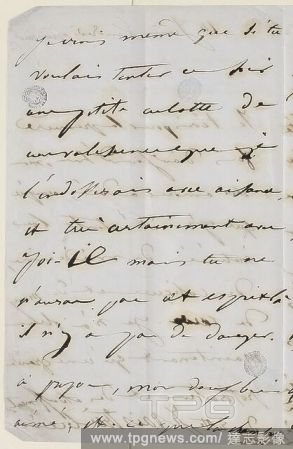 je crois même que si tu
voulais tenter ce soir
une petite culotte de
je
l'endosserais avec aisance
et très certainement avec
joie. mais tu ne
pas cet esprit là
il n'y a pas de danger.
à propos, mon
aimé, est-ce que
TPG
www.tpgnews.com / 達志影像